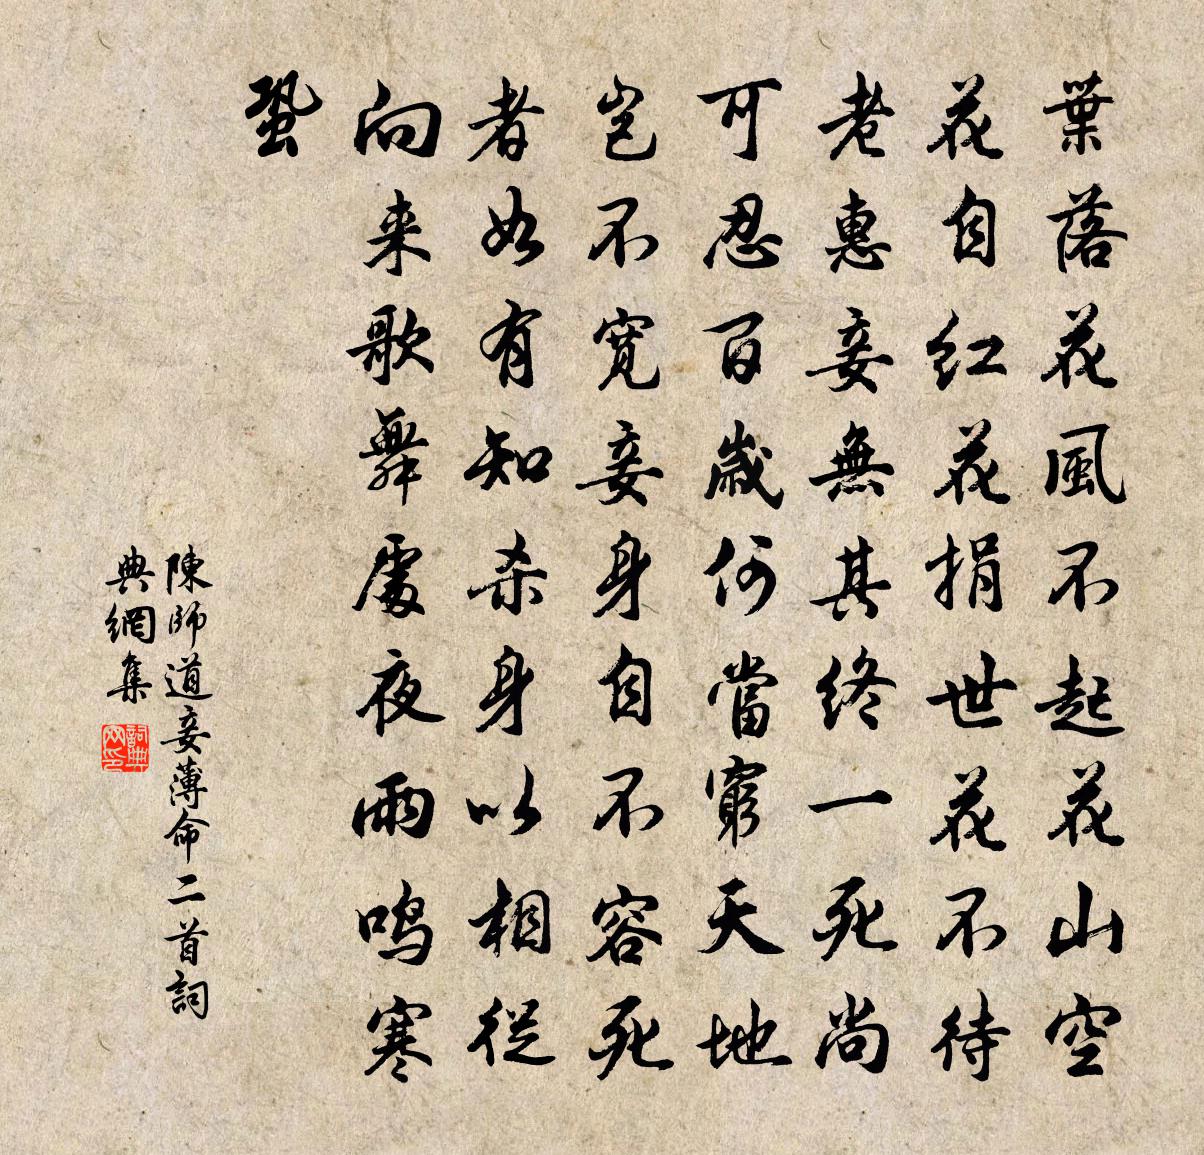 葉落花風不起花山空
花自红花捐世花不待
老惠妾無其终一死尚
可忍百歳何當窮天地
岂不寛妾身自不容死
者如有知杀身以相從
向来歌舞處夜雨鸣寒
蛩
陳師道妾薄命二首詞
典網集
詞典網印